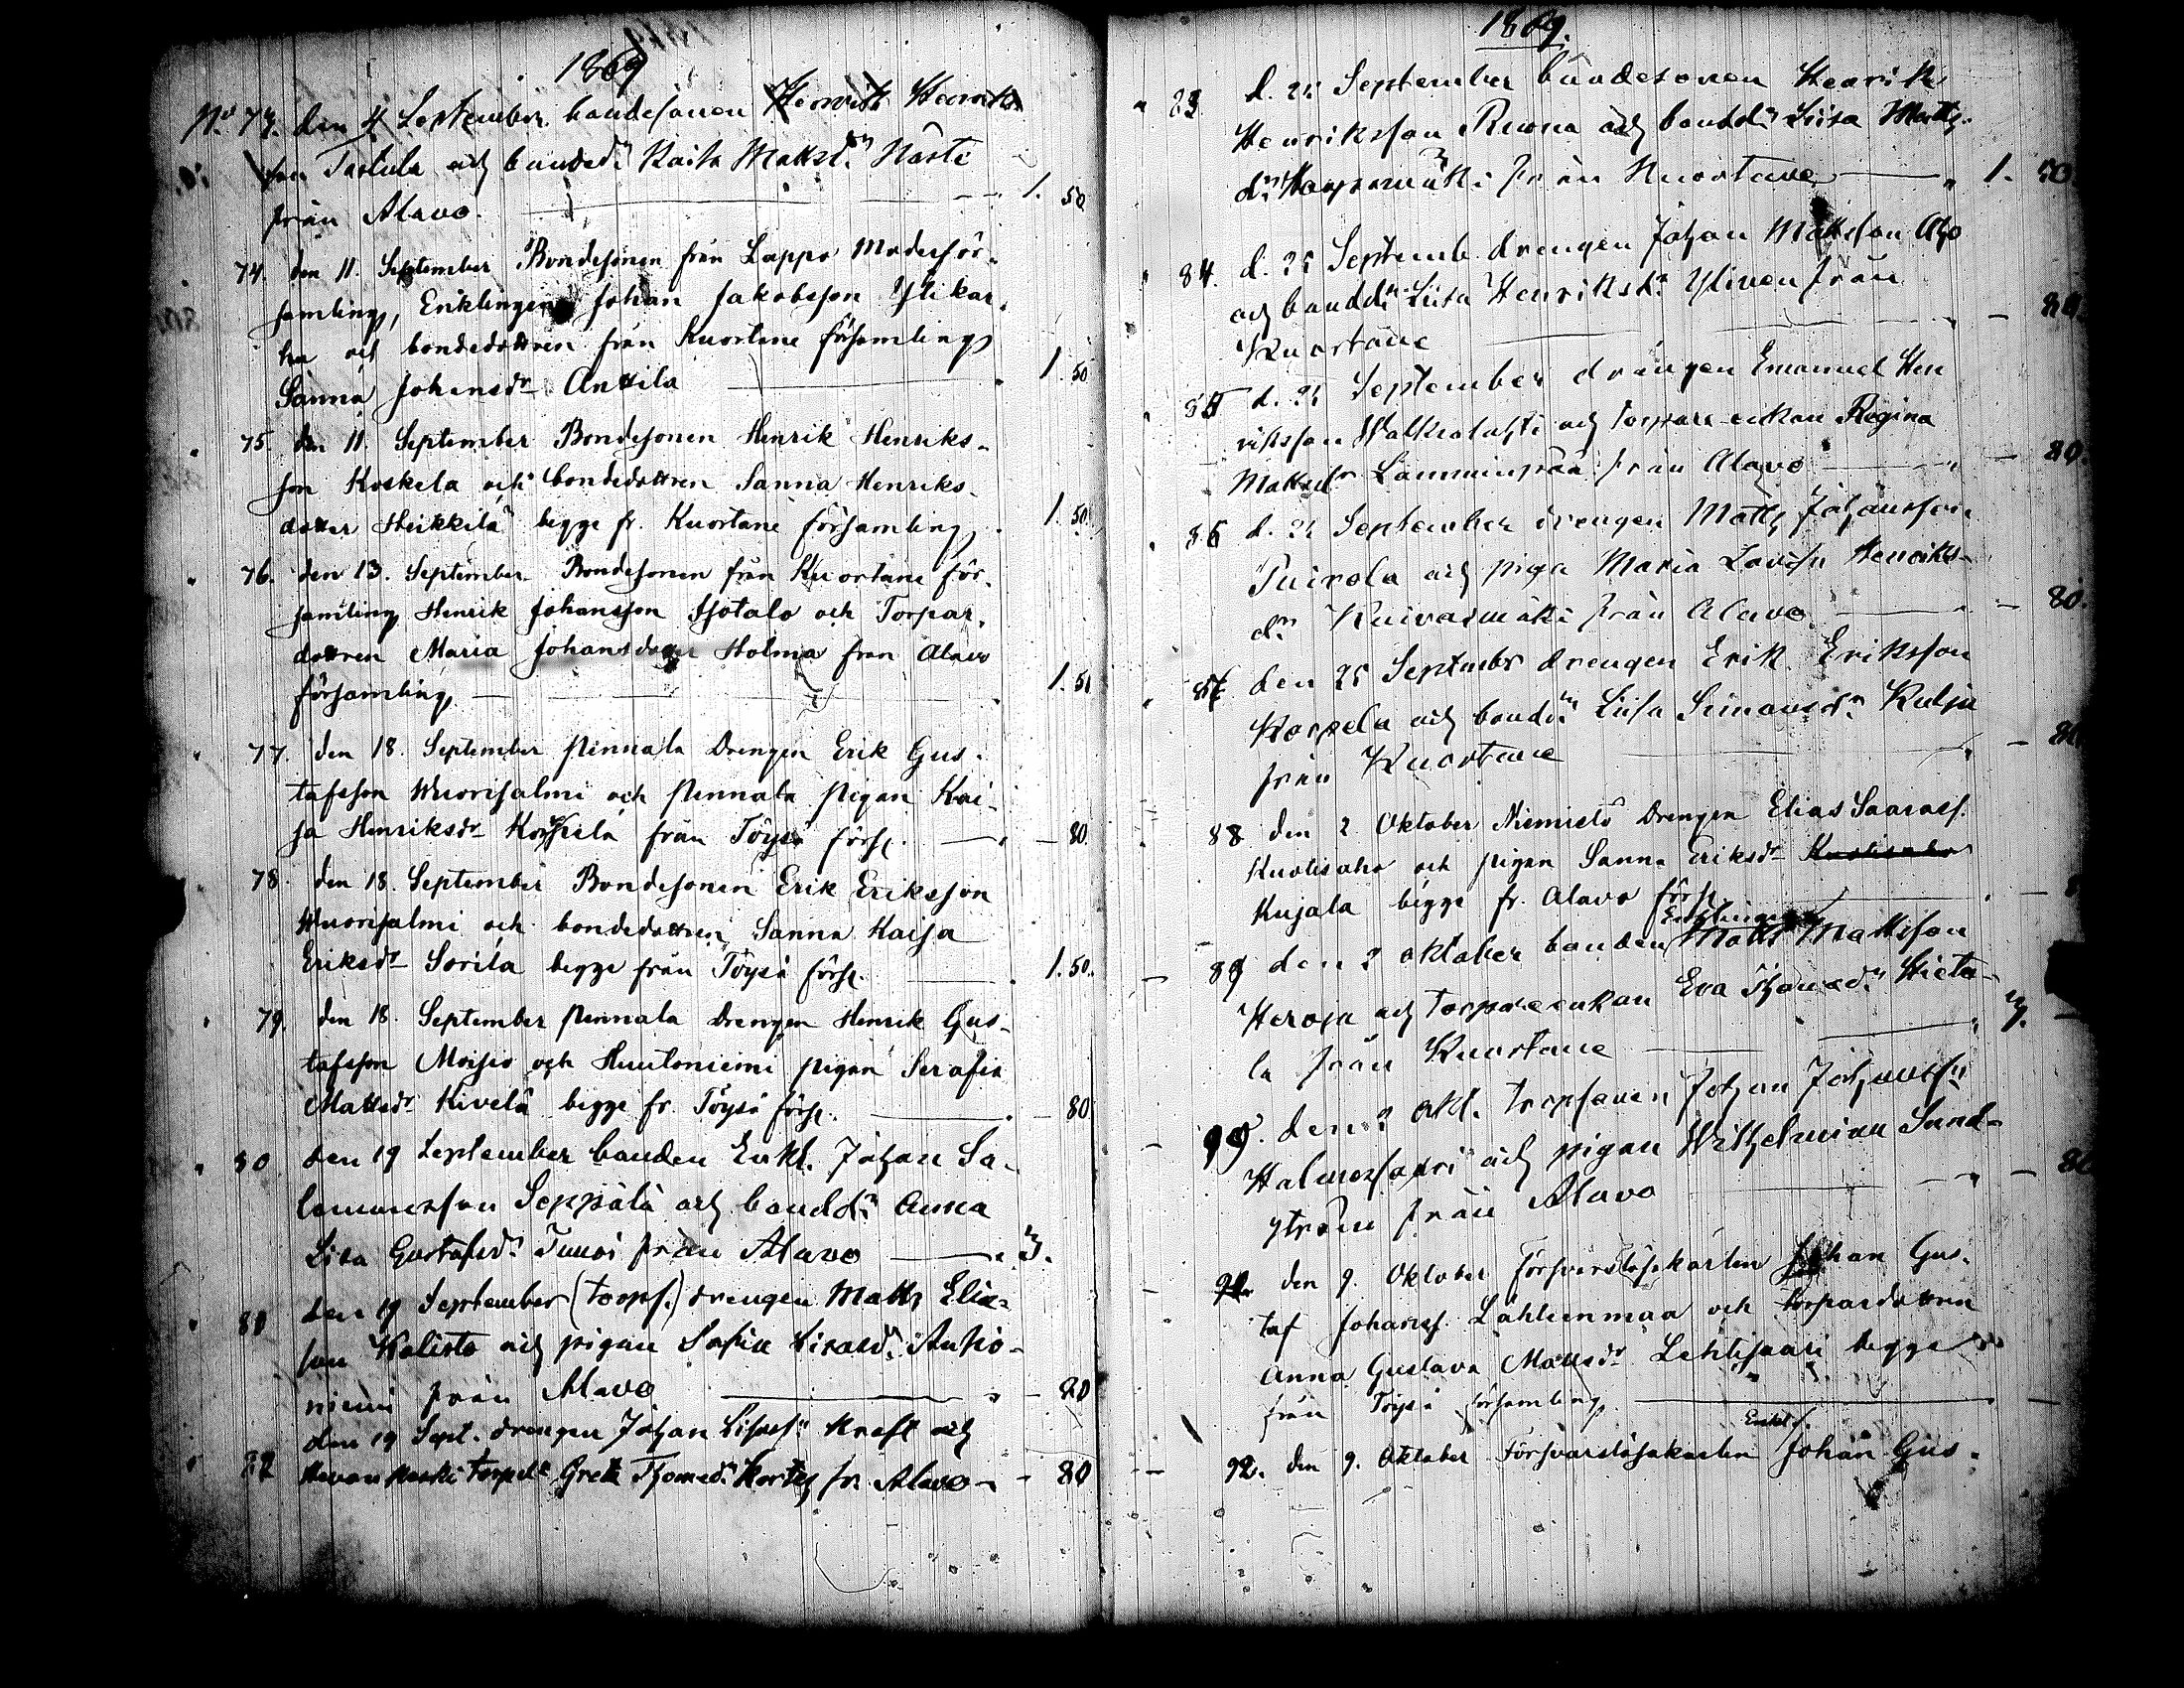 1869
No 73. den 4 September bondesonen Henrik Henriks
son Tastula och bonded:n Kaisa Mattsd:r Naste
från Alavo. 1. 50
74. den 11. September Bondesonen från Lappo Moderför-
samling, Enklingen Johan Jakobsson Ylikar-
hu och bondedottren från Kuortane församling
Sanna Johansdr Anttila 1. 50
75. den 11. September Bondesonen Henrik Henriks-
son Koskela och bondedottren Sanna Henriks-
dotter Heikkilä begge fr. Kuortane församling. 1. 50.
76. den 13. September Bondesonen från Kuortane för-
samling Henrik Johansson Isotalo och Torpar-
dottren Maria Johansdoter Holma från Alavo
församling 1. 50
77. den 18. September Pennala Drengen Erik Gus-
tafsson Wuorisalmi och Pennala pigan Kai-
sa Henriksdr från Töysä förs. — 80.
78. den 18. September Bondesonen Erik Eriksson
Wuorisalmi och bondedottren Sanna Kaisa
Eriksdr Sorila begge från Töysä förs. 1. 50.
79. den 18. September Pennala Drengen Henrik Gus-
tafsson Moisio och Huutoniemi pigan Serafia
Mattsdr Kivelä begge fr. Töysä förs. — 80
80 den 19 September bonden Enkl. Johan Sa-
lomonsson Seppälä och bondd:n Anna
Lisa Gustafsd:r Tuuri från Alavo 3.
81 den 19 September (torps.) drengen Matts Elia-
son och pigan Sofia
niemi från Alavo — 80
den 19 Sept. drengen Johan Kraft och
82 torpd:n Greta fr. Alavo — 80
1869.
83 d. 25 September bondesonen Henrik
Henriksson Ruona och bondd:n Liisa Matts-
d:r från Kuortane 1. 50.
84. d. 25 Septemb. drengen Johan Mattsson Aho
och bondd:n Liisa Henriksd:r Ylinen från
Kuortane — 80.
85 d. 25 September drängen Emanuel Hen
riksson och torpare enkan Regina
Mattsdr Lamminpää från Alavo — 80.
86 d. 25 September drengen Matts Johansson
Tuirola och piga Maria Lovisa Henriks-
d:r Kuivasmäki från Alavo. — 80.
87 den 25 Septembr drengen Erik Eriksson
Korpela och bondd:n Liisa Simonsd:r Kulju
från Kuortane — 80
88 den 2 Oktober Niemistö Drengen Elias Saarass.
Kuolisaho och pigan Sanna Eriksdr Kuolisaho
Kujala begge fr. Alavo förs.
89 den 2 oktober bonden Enklingen Matts Mattsson
Heroja och torpareenkan Eva Hieta-
la från Kuortane 3. —
90. den 2 okt. torpsonen Johan Johanss:n
och pigan Wilhelmina Sand-
ström från Alavo — 80
91. den 9. Oktober Försvarslösekarlen Johan Gus-
taf Johanss. Lähteenmaa och torpardottren
Anna Gustava Mattsdr Lehtisaari begge
från Töysä församling. —
92. den 9. Oktober Försvarslösakarlen Enkl. Johan Gus-